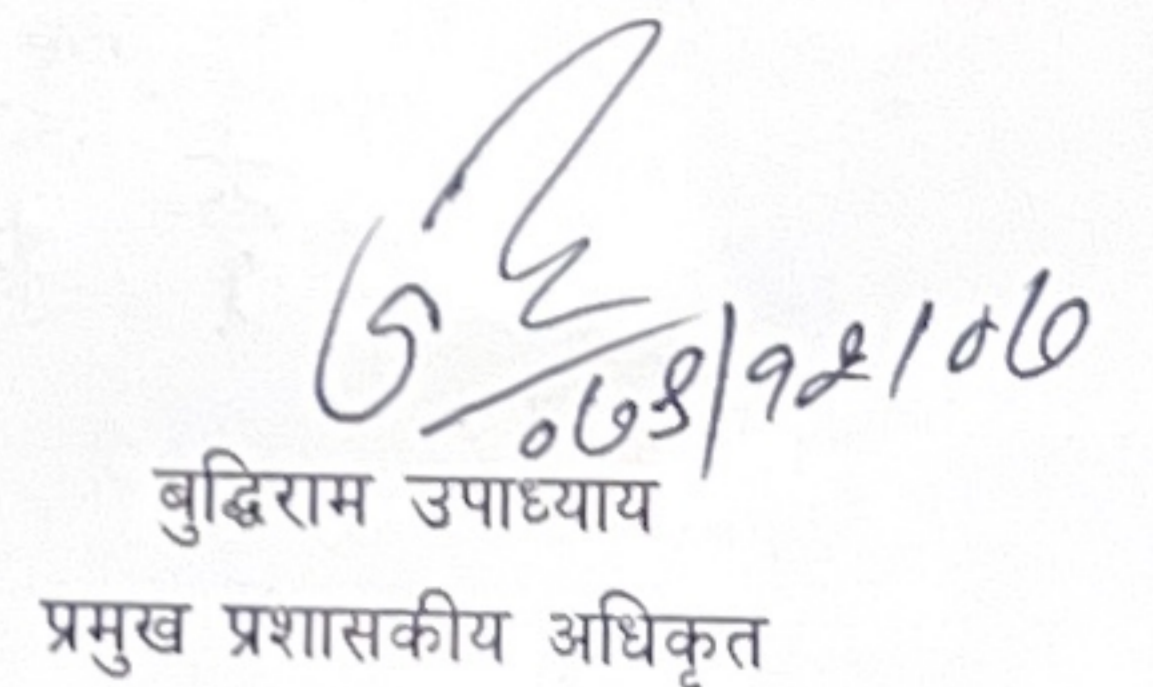 ०७९/१२/०७
बुद्धिराम उपाध्याय
प्रमुख प्रशासकीय अधिकृत